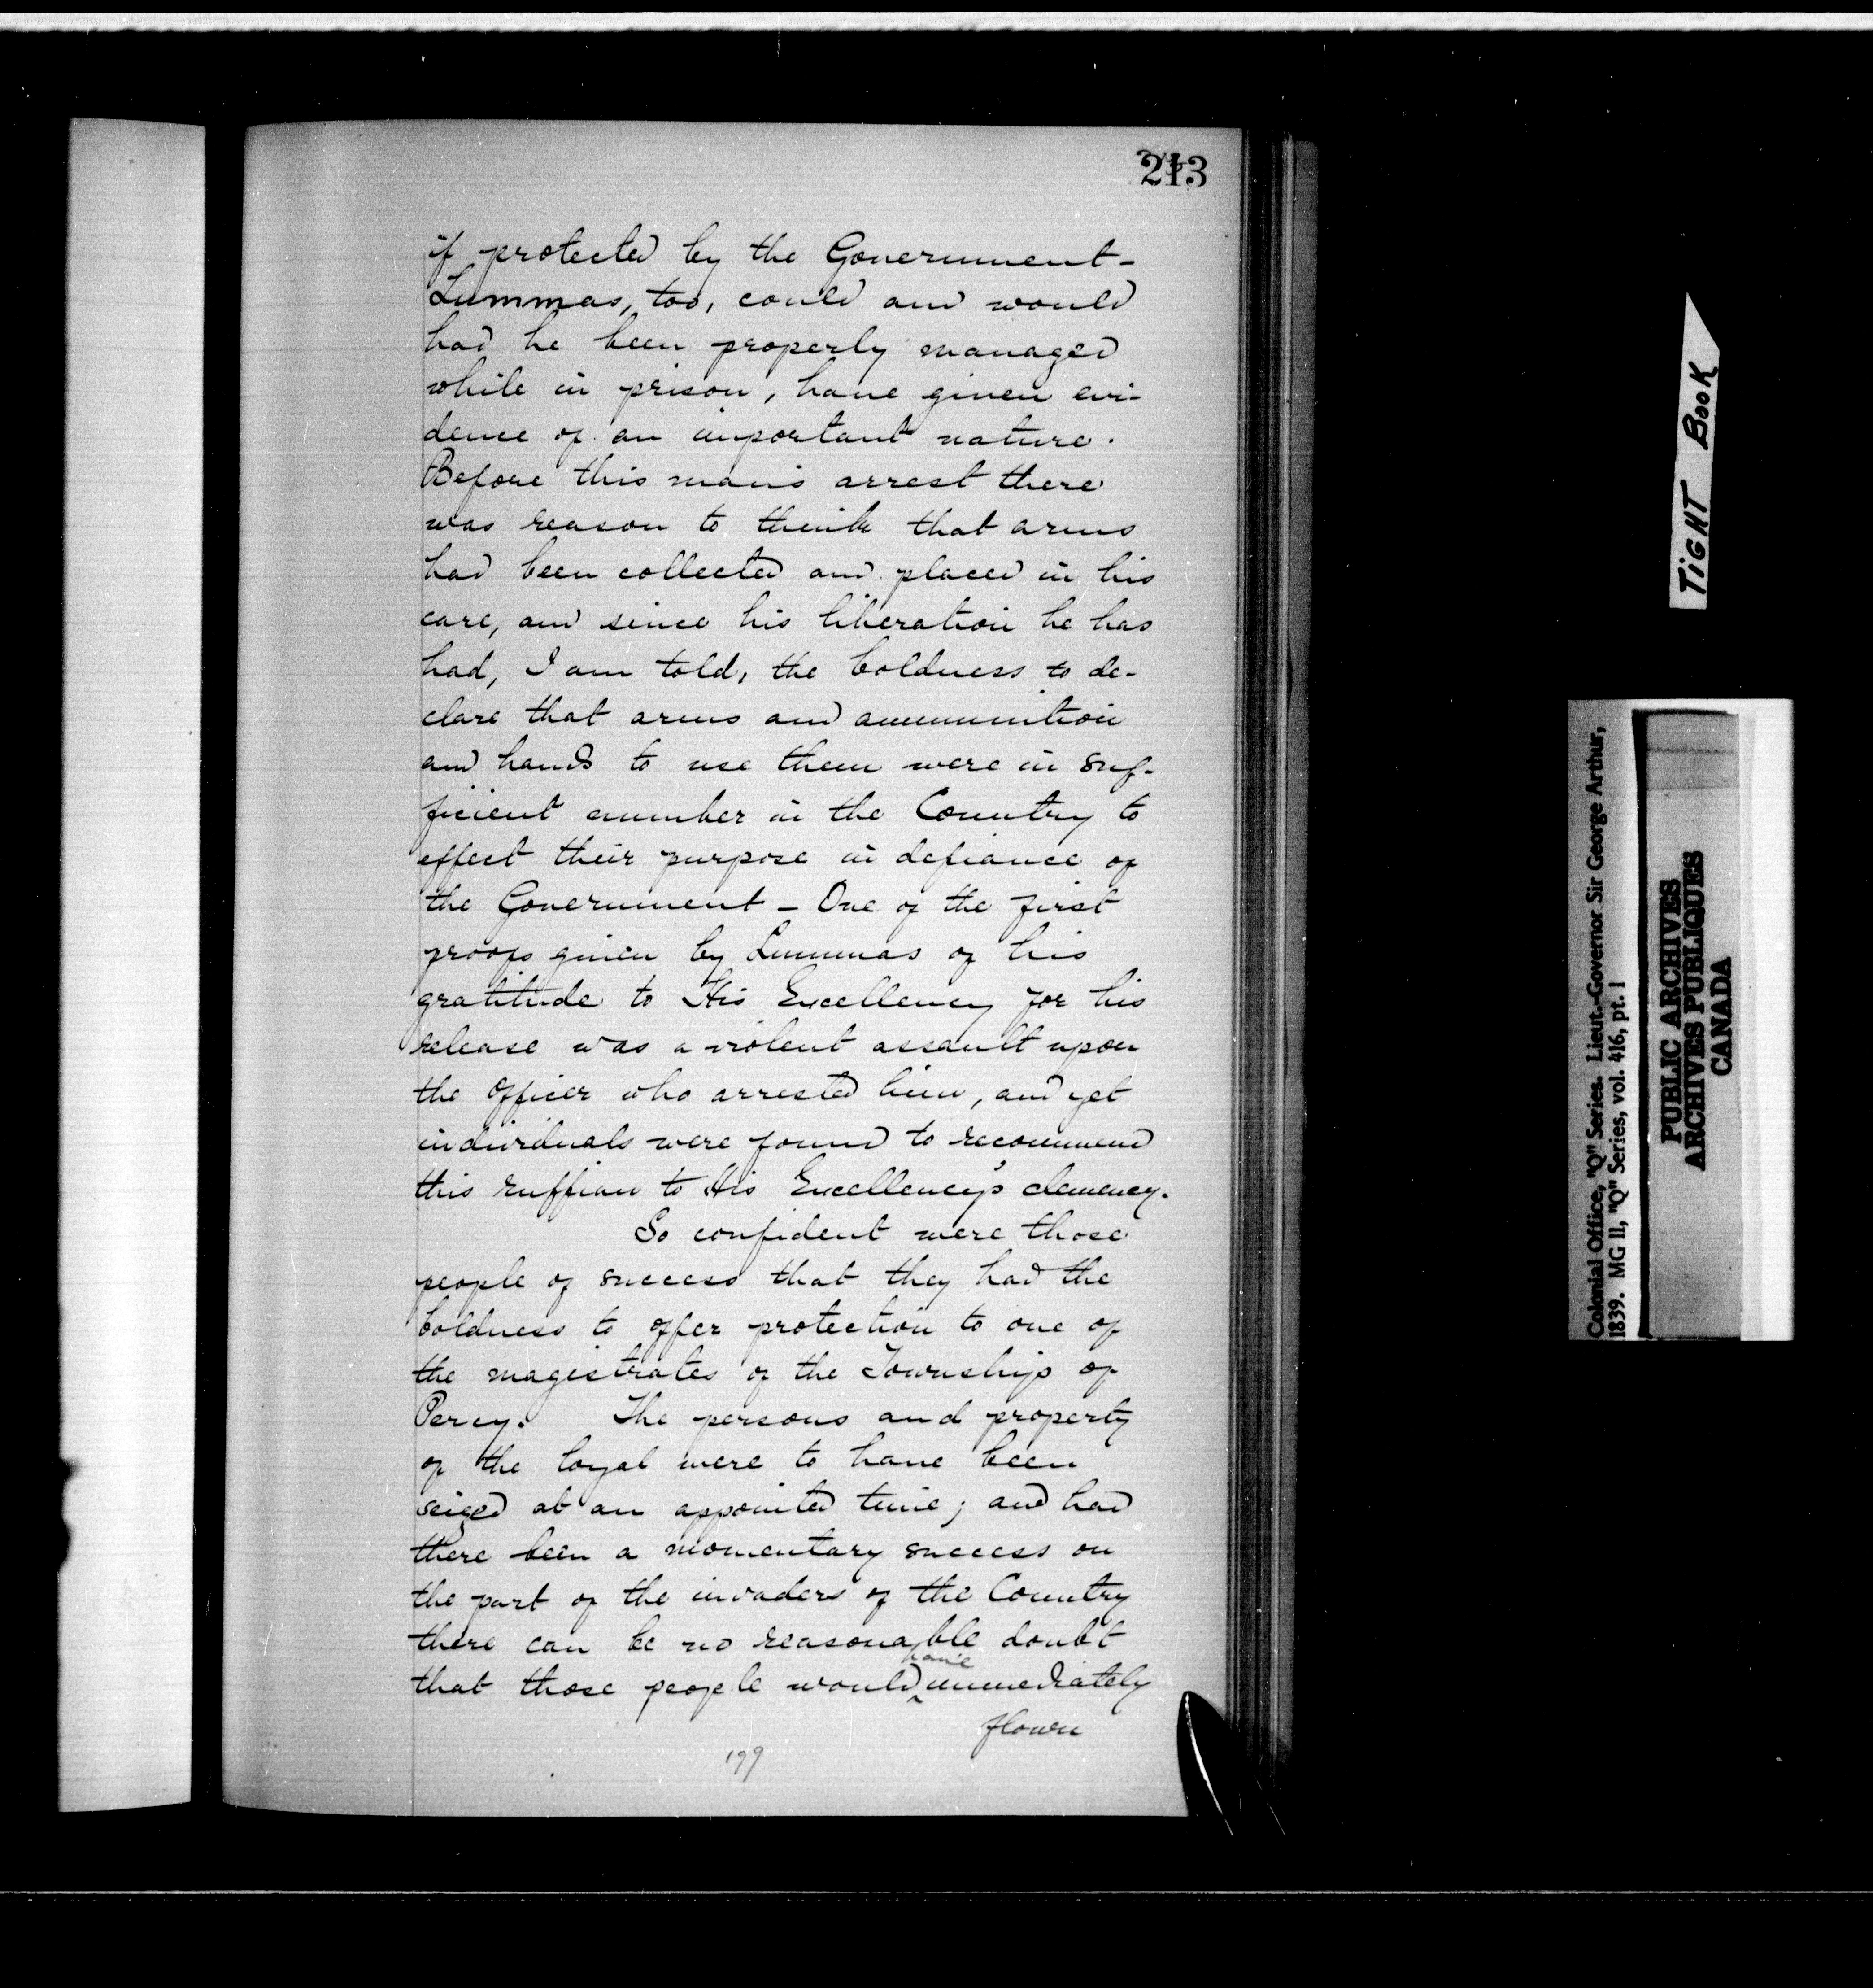 213
if protected by the Government -
Lummas, too, could and would
had he been properly managed
while in prison, have given evi-
dence of an important nature.
Before this man's arrest there
was reason to think that arms
had been collected and placed in his
care, and since his liberation he has
had, I am told, the boldness to de-
clare that arms and ammunition
and hands to use them were in suf-
ficient number in the Country to
effect their purpose in defiance of
the Government - One of the first
proofs given by Lummas of his
gratitude to His Excellency for his
release was a violent assault upon
the officer who arrested him, and yet
individuals were found to recommend
this ruffian to His Excellency's clemency.
So confident were those
people of success that they had the
boldness to offer protection to one of
the magistrates of the Township of
Percy. The persons and property
of the loyal were to have been
seized at an appointed time; and had
there been a momentary success on
the part of the invaders of the Country
there can be no reasonable doubt
that those people would have immediately
flown
199
TIGHT BOOK
Colonial Office, "Q" Series. Lieut.-Governor Sir George Arthur,
1839. MG 11, "Q" Series, vol. 416, pt. 1
PUBLIC ARCHIVES
ARCHIVES PUBLIQUES
CANADA